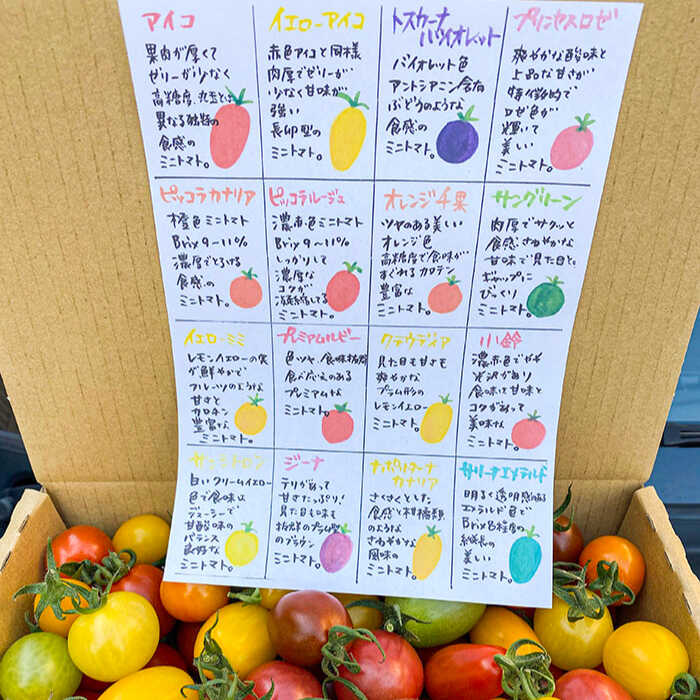 アイコ
果肉が厚くて
ゼリーが少なく
高糖度、丸玉とは
異なる独特の
食感の
ミニトマト。
イエローアイコ
赤色アイコと同様
肉厚でゼリーが
少なく甘味が
強い
長卵型の
ミニトマト。
トスカーナ
バイオレット
バイオレット色
アントシアニン含有
ぶどうのような
食感の
ミニトマト。
プリンセスロゼ
爽やかな酸味と
上品な甘さが
特徴的で
ロゼ色が
輝いて
美しい
ミニトマト。
ピッコラカナリア
橙色ミニトマト
Brix9-11%
濃厚でとろける
食感の
ミニトマト。
ピッコラルージュ
濃赤色ミニトマト
Brix9〜11%
しっかりして
濃厚な
コクが
凝縮してる
ミニトマト。
オレンジ千果
ツヤのある美しい
オレンジ色
高糖度で食味が
すぐれるカロテン
豊富な
ミニトマト。
サングリーン
肉厚でサクッと
食感さわやかな
甘味で見た目と
ギャップに
びっくり
ミニトマト。
イエローミミ
レモンイエローの実
が鮮やかで
フルーツのような
甘さと
カロチン
豊富な
ミニトマト。
プレミアムルビー
色ツヤ、食味抜群
食べごたえのある
プレミアムな
ミニトマト。
クラウディア
見た目も甘さも
爽やかな
プラム形の
レモンイエロー
ミニトマト。
小鈴
濃赤色でやや
光沢があり
食味は甘味と
コクがあって
美味な
ミニトマト。
白いクリームイエロー
色で食味は
ジューシーで
甘酸味の
バランス
良好な
ミニトマト。
ジーナ
テリがあって
甘さたっぷり!
見た目も
抜群のプラム型
のブラウン
ミニトマト。
ナポリターナ
カナリア
さくさくとした
食感と柑橘類
のような
さわやかな
風味の
ミニトマト。
サリーナエメラルド
明るく透明感のある
エメラルド色で
Brix8程度の
紡錘型の
美しい
ミニトマト。